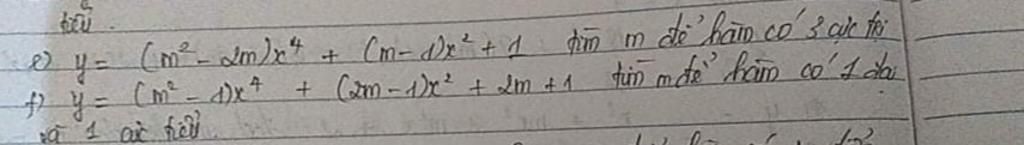 tiểu.
e) y = (m² - 2m)x⁴ + (m-1)x² + 1 tìm m để hàm có 3 cực trị
f) y = (m² - 1)x⁴ + (2m-1)x² + 2m + 1 tìm m để hàm có 1 đại
và 1 cực tiểu.